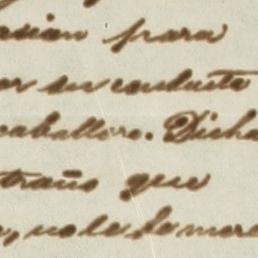 asian para
or su conducta
caballero. Dicha
traño que
, no le de mere